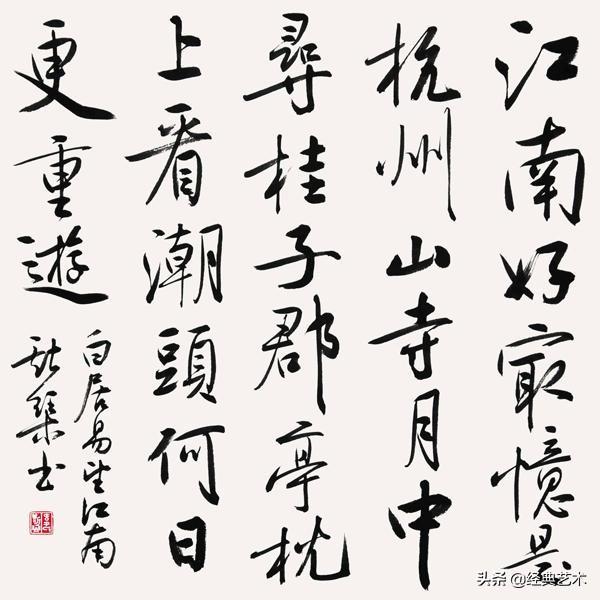 江南好冣憶是
杭州山寺月中
尋桂子郡亭枕
上看潮頭何日
更重遊
白居易望江南
集书
头条 @经典艺术